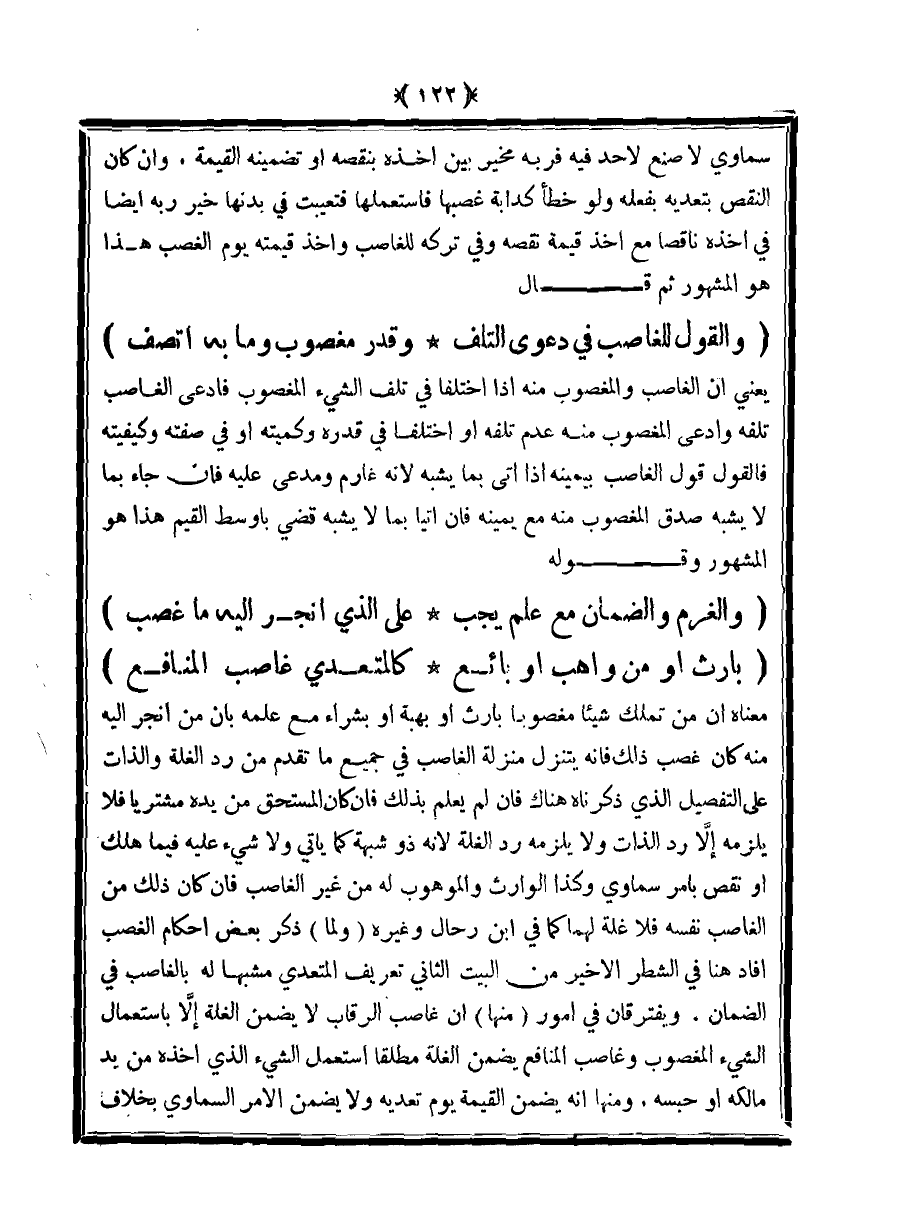 ﴿ ١٢٢ ﴾
سماوي لا صنع لاحد فيه فربه مخير بين اخذه بنقصه او تضمينه القيمة . وان كان
النقص بتعديه بفعله ولو خطأ كدابة غصبها فاستعملها فتعيبت في بدنها خير ربه ايضا
في اخذه ناقصا مع اخذ قيمة نقصه وفي تركه للغاصب واخذ قيمته يوم الغصب هـذا
هو المشهور ثم قـــــــال
( والقول للغاصب في دعوى التلف * وقدر مغصوب وما به اتصف )
يعني ان الغاصب والمغصوب منه اذا اختلفا في تلف الشيء المغصوب فادعى الغاصب
تلفه وادعى المغصوب منه عدم تلفه او اختلفا في قدره وكميته او في صفته وكيفيته
فالقول قول الغاصب بيمينه اذا اتى بما يشبه لانه غارم ومدعى عليه فان جاء بما
لا يشبه صدق المغصوب منه مع يمينه فان اتيا بما لا يشبه قضي باوسط القيم هذا هو
المشهور وقـــــــوله
( والغرم والضمان مع علم يجب * على الذي انجـر اليه ما غصب )
( بارث او من واهب او بائـع * كالمتعـدي غاصب المنافـع )
معناه ان من تملك شيئا مغصوبا بارث او بهبة او بشراء مـع علمه بان من انجر اليه
منه كان غصب ذلك فانه يتنزل منزلة الغاصب في جميع ما تقدم من رد الغلة والذات
على التفصيل الذي ذكرناه هناك فان لم يعلم بذلك فان كان المستحق من يده مشتريا فلا
يلزمه إلَّا رد الذات ولا يلزمه رد الغلة لانه ذو شبهة كما ياتي ولا شيء عليه فيما هلك
او نقص بامر سماوي وكذا الوارث والموهوب له من غير الغاصب فان كان ذلك من
الغاصب نفسه فلا غلة لهما كما في ابن رحال وغيره ( ولما ) ذكر بعض احكام الغصب
افاد هنا في الشطر الاخير من البيت الثاني تعريف المتعدي مشبها له بالغاصب في
الضمان . ويفترقان في امور ( منها ) ان غاصب الرقاب لا يضمن الغلة إلَّا باستعمال
الشيء المغصوب وغاصب المنافع يضمن الغلة مطلقا استعمل الشيء الذي اخذه من يد
مالكه او حبسه . ومنها انه يضمن القيمة يوم تعديه ولا يضمن الامر السماوي بخلاف